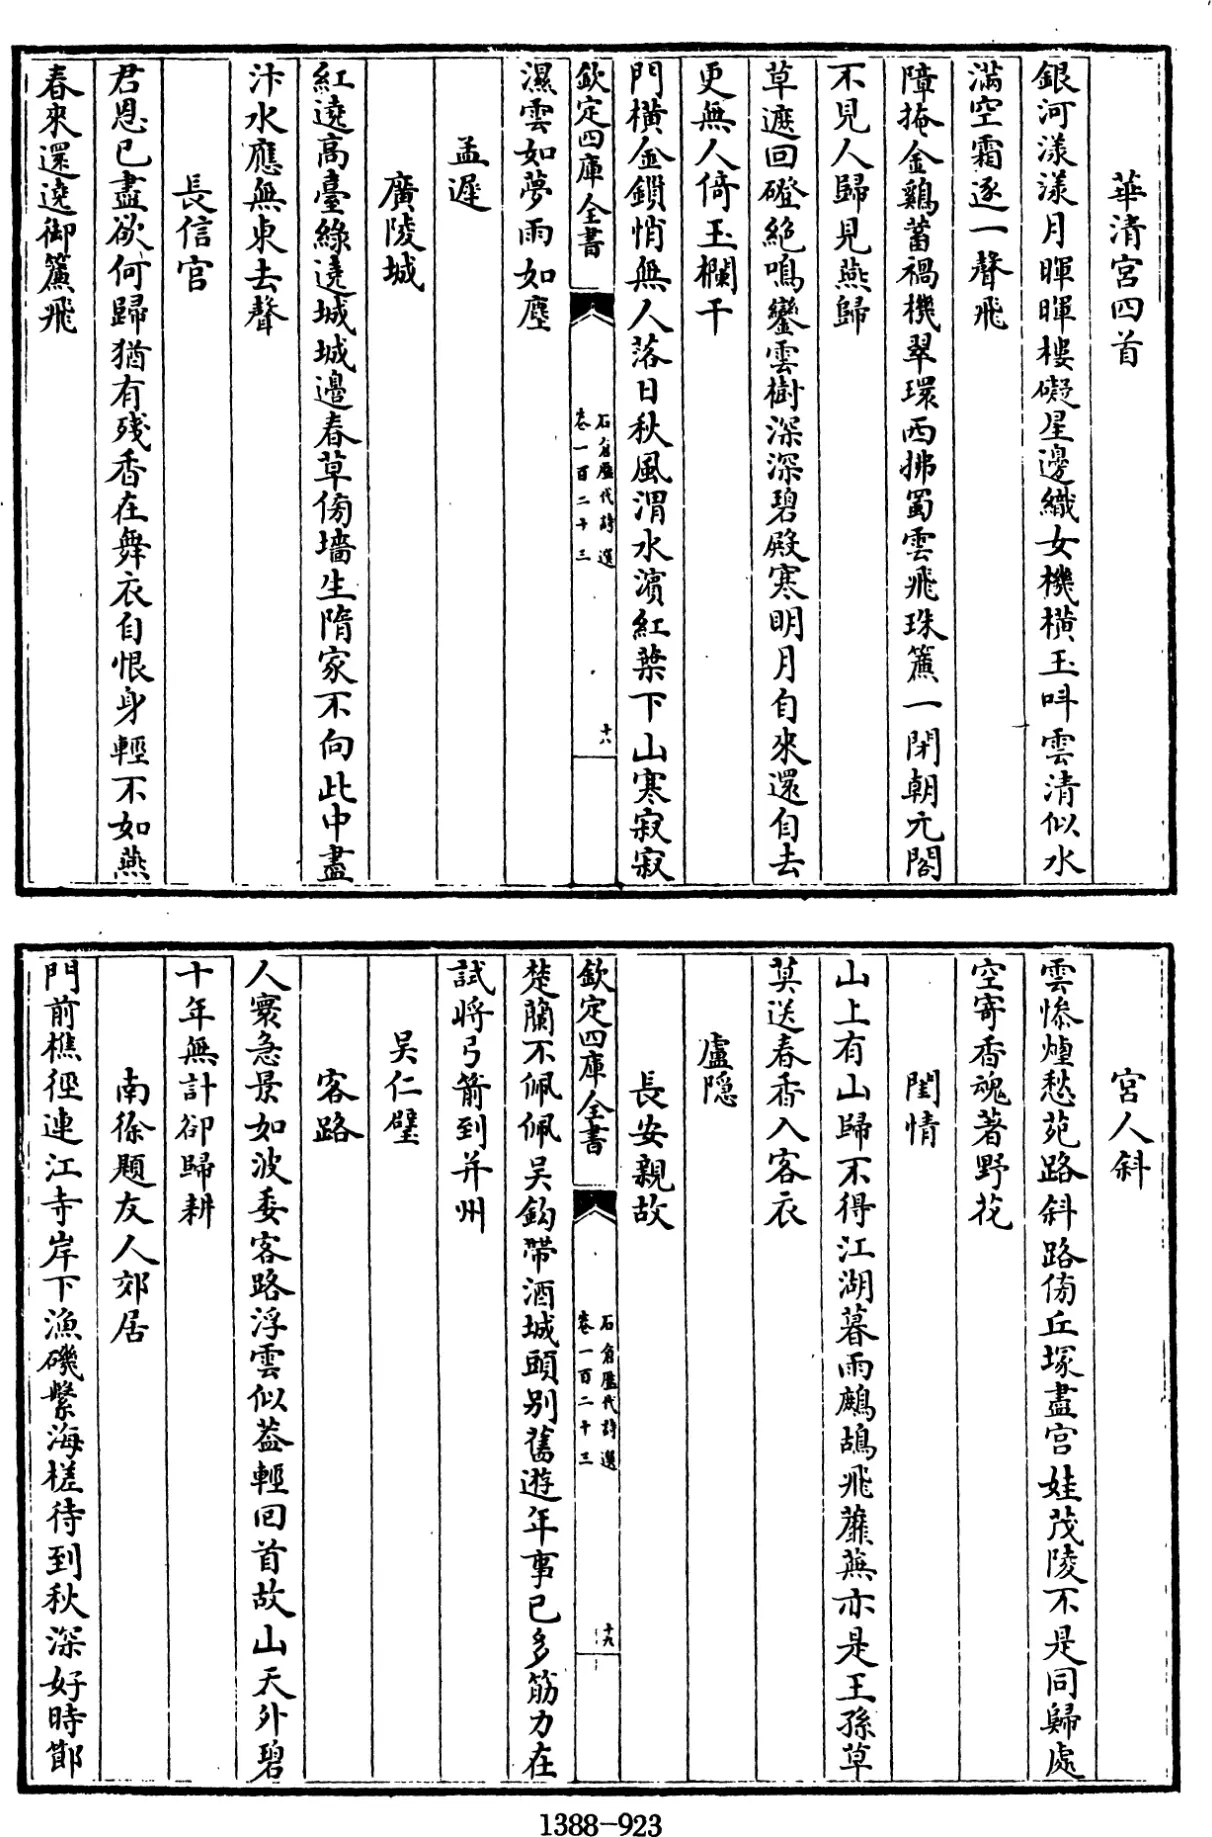 華清宮四首
銀河漾漾月暉暉樓礙星邊織女機橫玉叫雲清似水
滿空霜逐一聲飛
障掩金鷄蓄禍機翠環西拂蜀雲飛珠簾一閉朝元閣
不見人歸見燕歸
草遮回磴絶鳴鑾雲樹深深碧殿寒明月自來還自去
更無人倚玉欄干
門橫金鎖悄無人落日秋風渭水濱紅葉下山寒寂寂
欽定四庫全書
石倉歷代詩選
卷一百二十三
十八
濕雲如夢雨如塵
孟遲
廣陵城
紅遶高臺綠遶城城邉春草傍墻生隋家不向此中盡
汴水應無東去聲
長信宫
君恩已盡欲何歸猶有殘香在舞衣自恨身輕不如燕
春來還遶御簾飛
宫人斜
雲慘煙愁苑路斜路傍丘塚盡宫娃茂陵不是同歸處
空寄香魂著野花
閨情
山上有山歸不得江湖暮雨鷓鴣飛蘼蕪亦是王孫草
莫送春香入客衣
盧隱
長安親故
楚蘭不佩佩吴鈎帶酒城頭别舊遊年事已多筋力在
欽定四庫全書
石倉歷代詩選
卷一百二十三
十九
試將弓箭到并州
吴仁璧
客路
人寰急景如波委客路浮雲似葢輕回首故山天外碧
十年無計卻歸耕
南徐題友人郊居
門前樵徑連江寺岸下漁磯繫海槎待到秋深好時節
1388-923